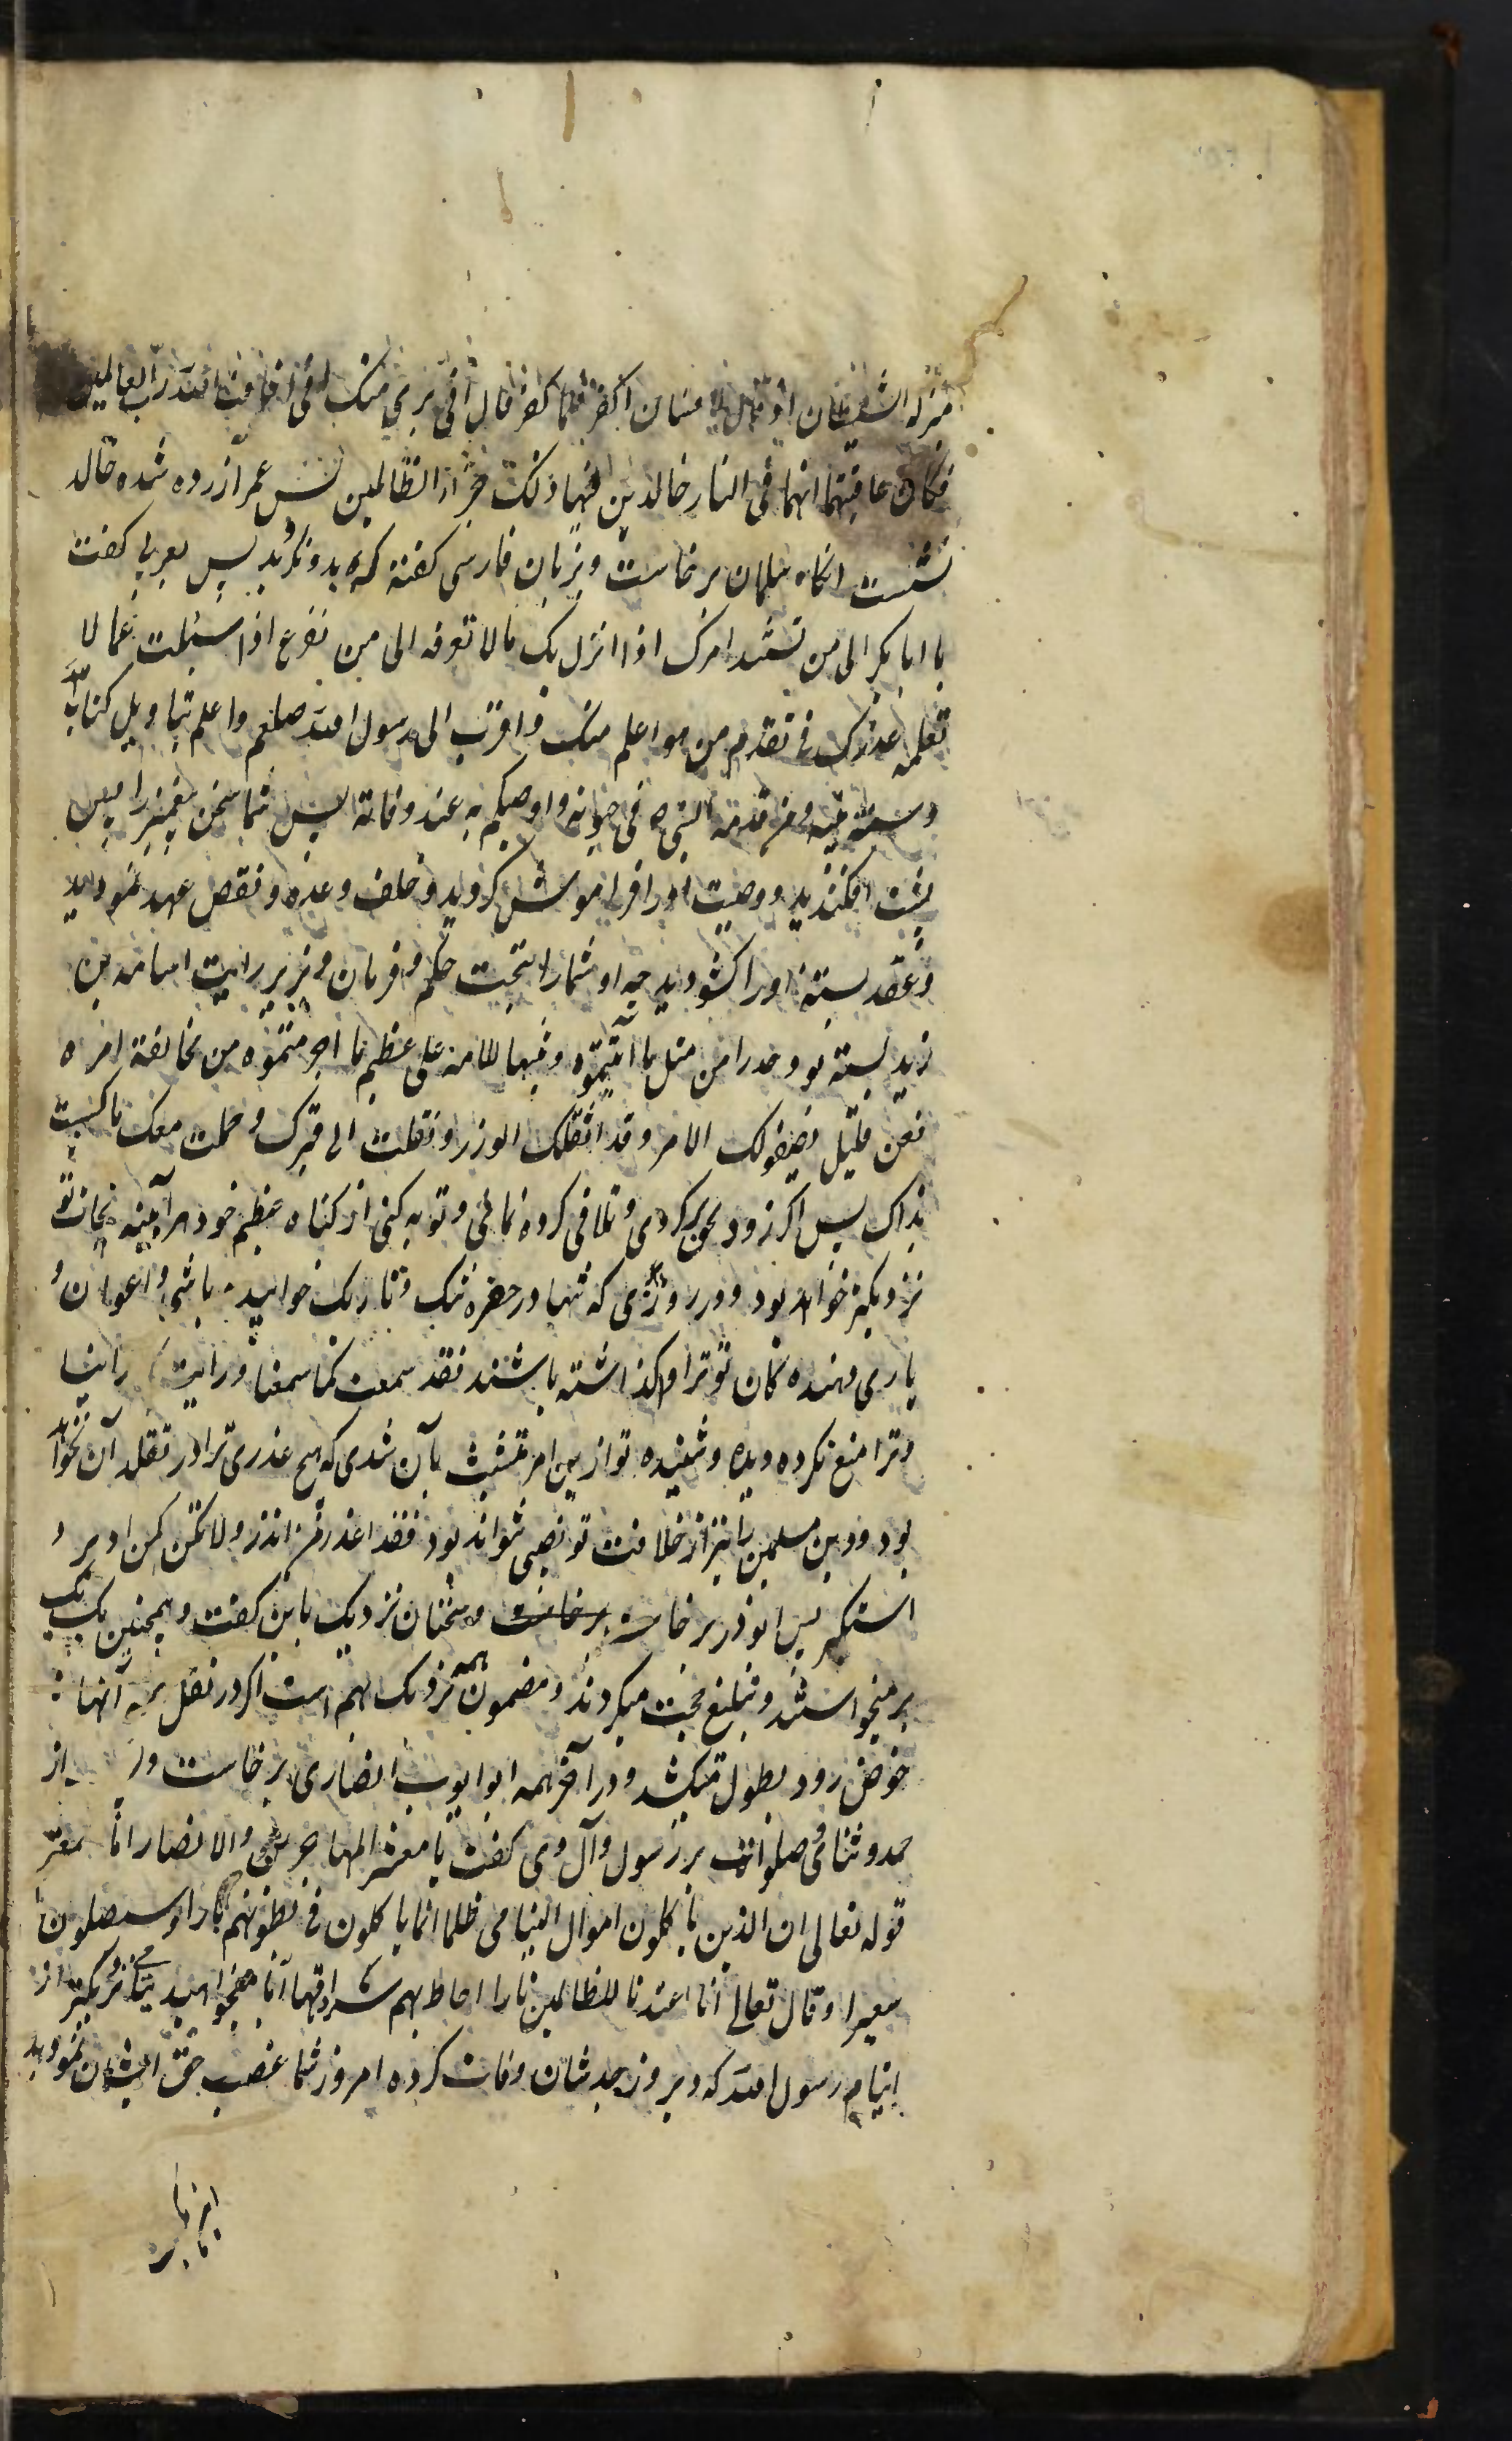 منزله الشیطان اذ قال للانسان اکفر فلما کفر قال انی بری منک انی اخاف الله رب العالمین
فکان عاقبتهما انهما فی النار خالدین فیها و ذلک جزاء الظالمین پس عمر آزرده شده خالد
نشست انکاه سلمان برخاست و بزبان فارسی کفته که بد ونکردید پس بعربی کفت
یا ابا بکر الی من تسند امرک اذا نزل بک ما لا تعرفه الی من تفزع اذا سئلت عما لا
تعلمه عذرک فی تقدم من هو اعلم منک و اقرب الی رسول الله صلعم و اعلم بتاویل کتاب الله
و سنة نبیه و من قدمه النبی ص فی حیوته و اوصیکم به عند وفاته پس شما سخن پیغمبر را پس
پشت افکندید و وصیت او را فراموش کردید و خلف وعده و نقص عهد نمودید
و عقد بسته او را کشودید چه او شما را بتحت حکم و فرمان و زیر رایت اسامه بن
زید بسته بود حدرا من مثل ما اتیتموه و تنبیها للامة علی عظیم ما اجترمتموه من مخالفة امره
فعن قلیل یصفولک الامر و قد اثقلک الوزر و نقلت الی قبرک و حملت معک ما کسبت
یداک پس اکر زود بحق برکردی و تلافی کرده نمائی و توبه کنی از کناه عظیم خود هر آینه نجات تو
نزدیکتر خواهد بود و در روزی که تنها در حفره تنک و تاریک خوابیده باشی و اعوان و
یاری دهنده کان تو ترا واکذاشته باشند فقد سمعت کما سمعنا و رایت کما راینا
و ترا منع نکرده دیده و شنیده تو از این امر تتشبث بآن شدی که هیچ عذری ترا در تقلد آن نخواهد
بود و دین مسلمین را نیز از خلافت تو نصیبی نتواند بود فقد اعذر من انذر و لا تکن کمن ادبر و
استکبر پس ابوذر برخاست برخاست و سخنان نزدیک باین کفت و همچنین یک یک
برمیخواستند و تبلیغ حجت میکردند و مضمون همه نزدیک بهم است اکر در نقل همه آنها
خوض رود بطول میکشد و در آخر همه ابوایوب انصاری برخاست و از
حمد و ثنای و صلوات بر رسول و آل وی کفت یا معشر المهاجرین و الانصار اما سمعتم
قوله تعالی ان الذین یاکلون اموال الیتامی ظلما انما یاکلون فی بطونهم نارا و سیصلون
سعیرا و قال تعالی انا اعتدنا للظالمین نارا احاط بهم سرادقها آیا میخواهید یتیمی نزدیکتر از
ایتام رسول الله که دیروز جد شان وفات کرده امروز شما غصب حق ایشان نمودید